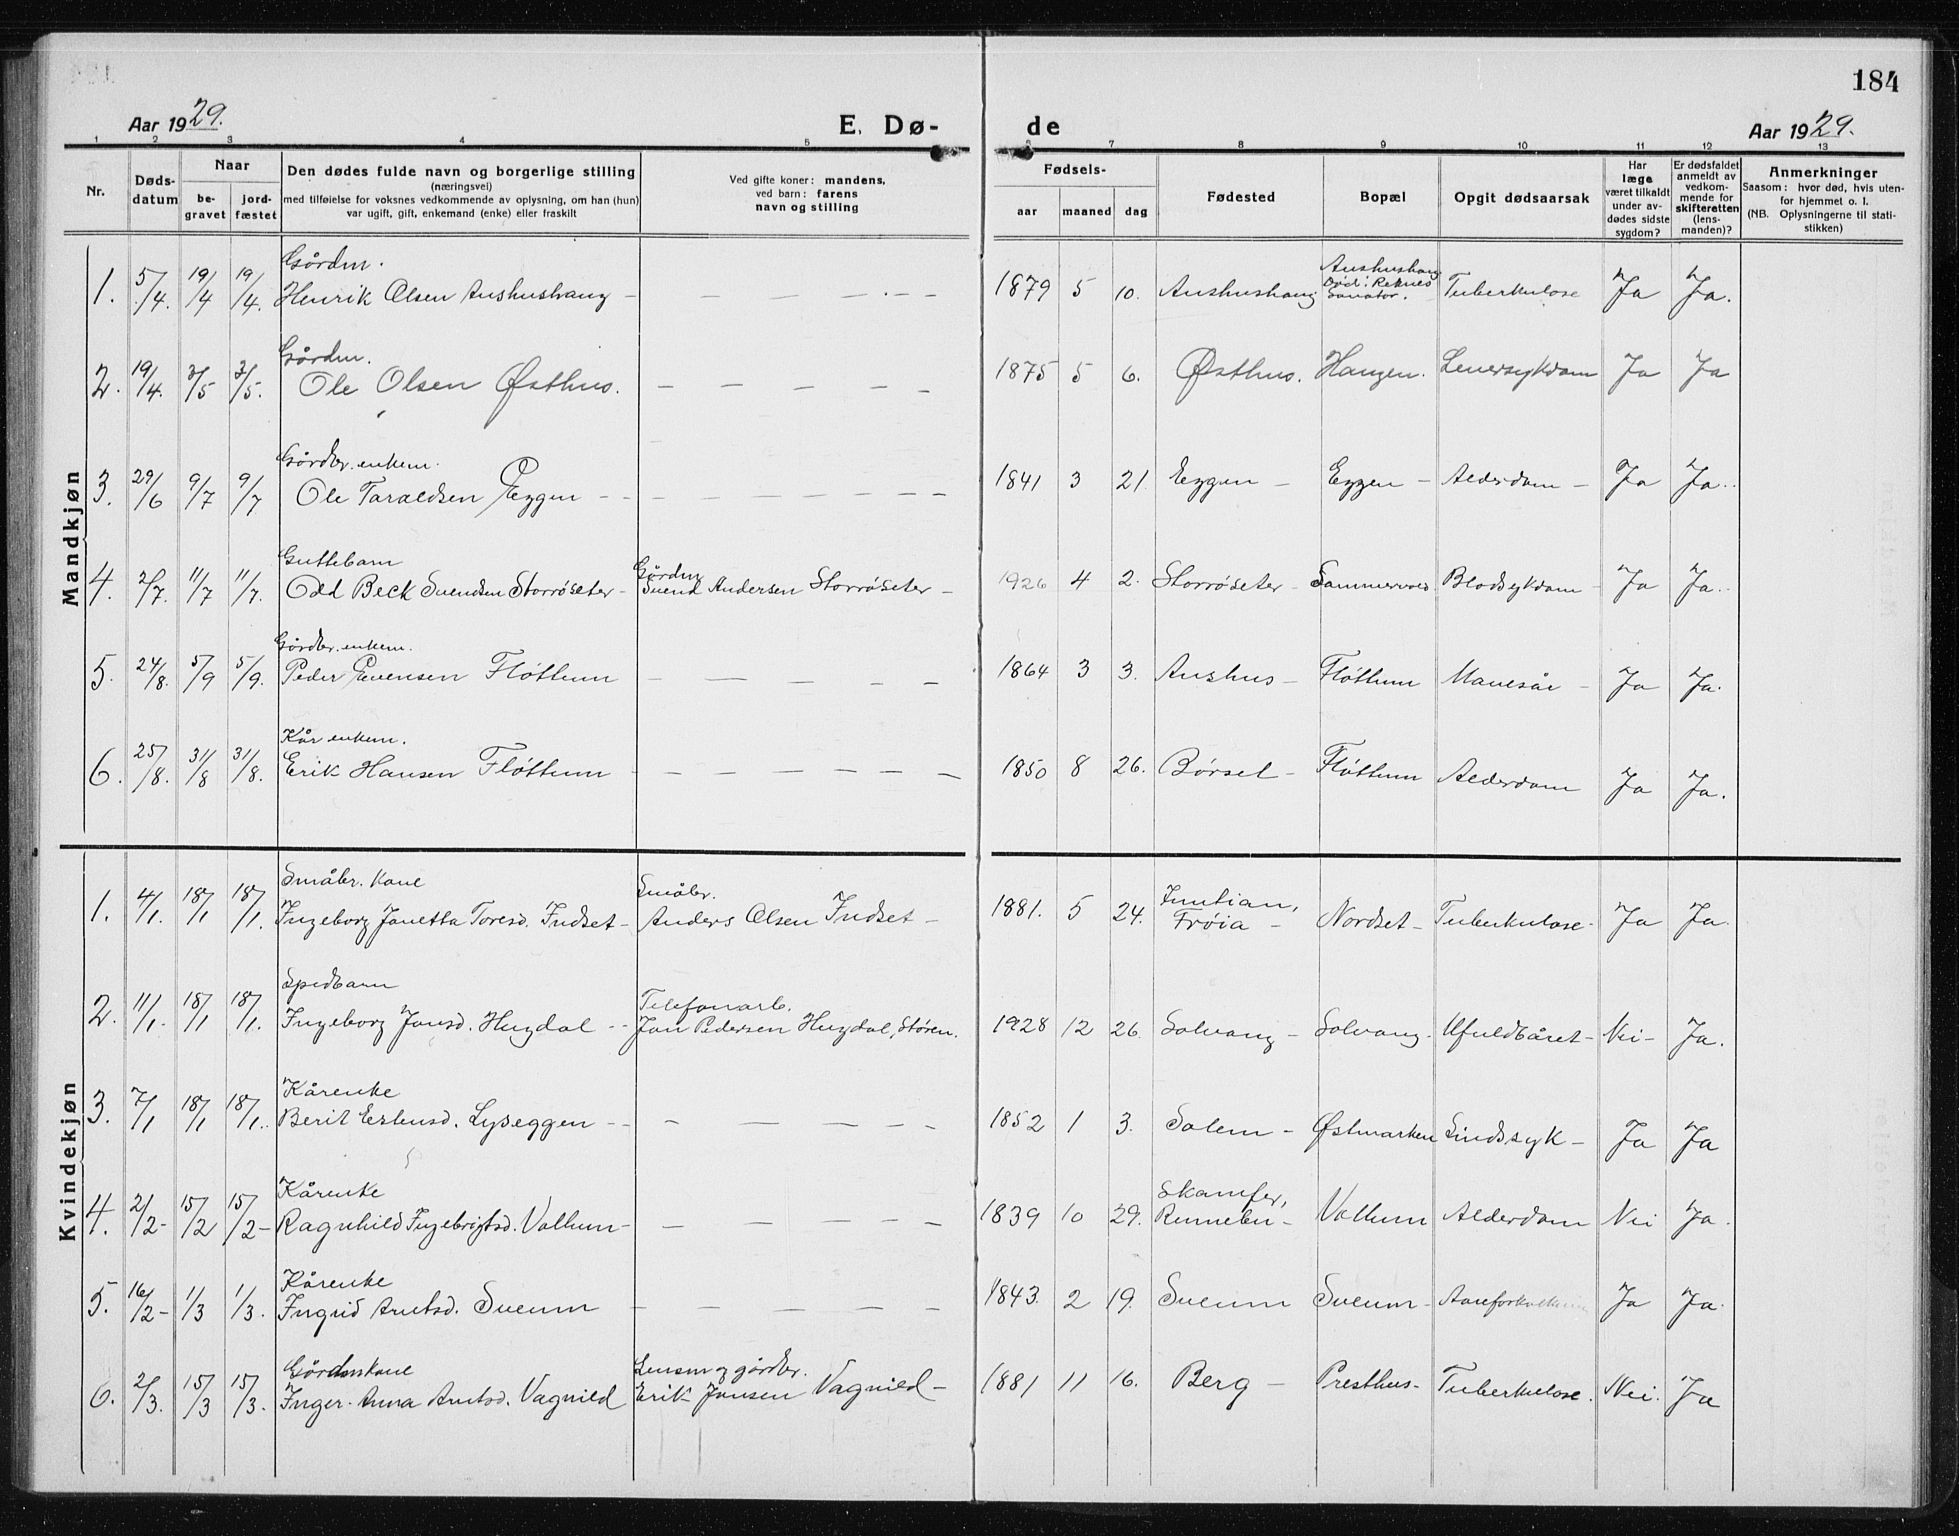 184
Aar 1929.
E. Dø-
de
Aar 1929.
1 2 3 4 5 6 7 8 9 10 11 12 13
Nr.
Døds-
datum
Naar
be-
gravet
jord-
fæstet
Den dødes fulde navn og borgerlige stilling
(næringsvei)
med tilføielse for voksnes vedkommende av oplysning, om han (hun)
var ugift, gift, enkemand (enke) eller fraskilt
Ved gifte koner: mandens,
ved barn: farens
navn og stilling
Fødsels-
aar maaned dag
Fødested
Bopæl
Opgit dødsaarsak
Har
læge
været tilkaldt
under av-
dødes sidste
sygdom?
Er dødsfaldet
anmeldt av
vedkom-
mende for
skifteretten
(lens-
manden)?
Anmerkninger
Saasom: hvor død, hvis uten-
for hjemmet o. l.
(NB. Oplysningerne til stati-
stikken)
Mandkjøn
Gårdm.
1. 5/4. 19/4 19/4. Henrik Olsen Aushushaug - 1879 5 10. Aushushaug Aushushaug Død: Reknes Sanator. Tuberkulose Ja Ja.
Gårdm.
2. 19/4. 3/5 3/5. Ole Olsen Østhus. - 1875 5 6. Østhus. Haugen. Leversykdom Ja Ja
Gårdbr. enkem.
3. 29/6 9/7 9/7 Ole Taraldsen Eggen - 1841 3 21. Eggen - Eggen - Alderdom - Ja Ja.
Guttebarn Gårdm.
4. 2/7. 11/7 11/7. Odd Beck Svendsen Storrøseter - Svend Andersen Storrøseter - 1926 4 2. Storrøseter - Sommervold Blodsykdom - Ja Ja.
Gårdbr. enkem.
5. 24/8. 5/9 5/9. Peder Evensen Fløttum - 1864 3 3. Aushus - Fløttum Mavesår - Ja Ja.
Kår enkem.
6. 25/8. 31/8 31/8. Erik Hansen Fløttum - 1850 8 26. Børsel - Fløttum Alderdom Ja Ja.
Kvindekjøn
Småbr. kone Småbr.
1. 4/1. 18/1 18/1. Ingeborg Janetta Toresd. Indset - Anders Olsen Indset - 1881. 5 24. Inntian, Frøia - Nordset - Tuberkulose - Ja Ja.
Spedbarn Telefonarb.
2. 11/1. 18/1 18/1. Ingeborg Jonsd. Hugdal - Jon Pedersen Hugdal, Støren. 1928 12 26. Solvang - Solvang. Ufuldbåret - Nei - Ja.
Kårenke
3. 7/1 18/1 18/1. Berit Estensd. Lyseggen - 1852 1 3. Solem - Østmarken Sindssyk - Ja Ja
Kårenke
4. 2/2- 15/2 15/2- Ragnhild Ingebrigtsd. Vollum - 1839 10 29. Skamfer, Rennebu - Vollum Alderdom Nei Ja.
Kårenke
5. 16/2- 1/3 1/3. Ingrid Arntsd. Sveum - 1843. 2 19. Sveum Sveum - Aareforkalkning Ja Ja.
Gårdmkone Lensm og gårdbr.
6. 2/3. 15/3 15/3. Inger Anna Arntsd. Vagnild Erik Jonsen Vagnild - 1881 11 16. Berg - Presthus - Tuberkulose. Nei. Ja